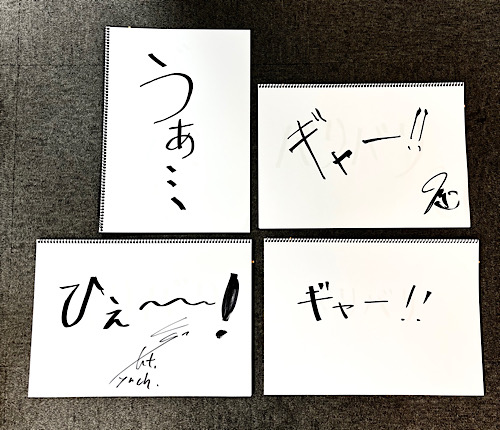 うぁ…
ギャー!!
ひぇ〜〜!
ギャー!!